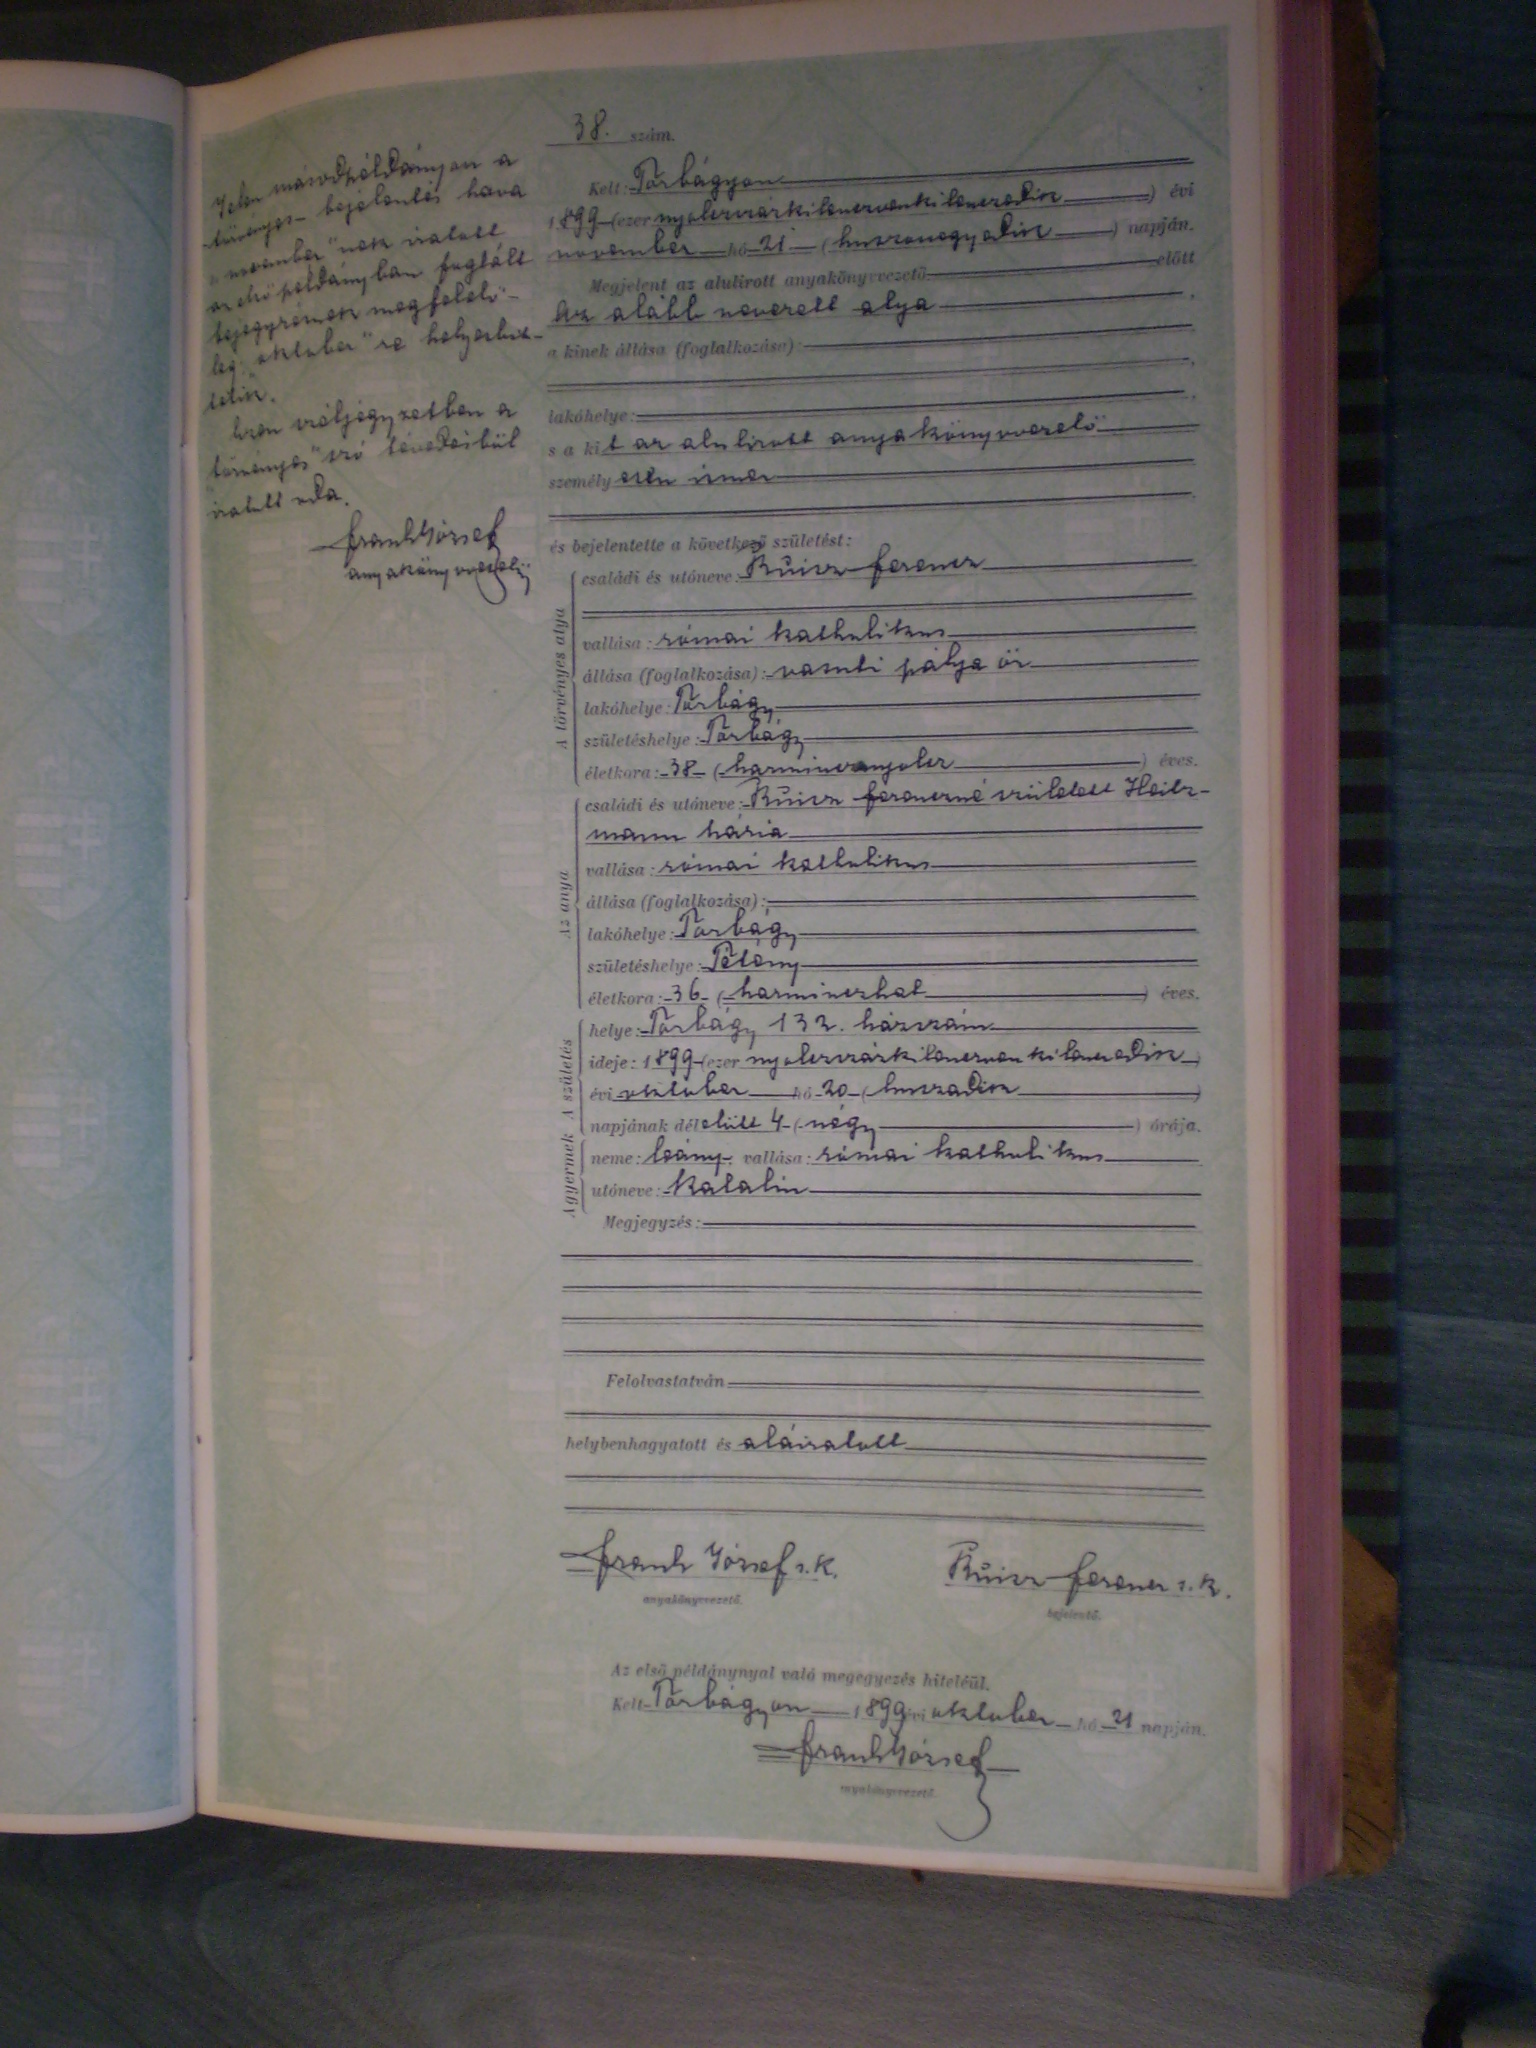 38. szám.
Kelt: Torbágyon
1899 (ezer nyolczszázkilenczvenkilenczedik) évi
november hó 21 (huszonegyedik) napján.
Megjelent az alulirott anyakönyvvezető előtt
az alább nevezett atya,
a kinek állása (foglalkozása):
lakóhelye:
s a kit az alulirott anyakönyvvezető
személyesen ismer
és bejelentette a következő születést:
A törvényes atya
családi és utóneve: Ferencz
vallása: római katholikus
állása (foglalkozása): vasuti pálya őr
lakóhelye: Torbágy
születéshelye: Torbágy
életkora: 38 (harmincznyolcz) éves.
Az anya
családi és utóneve: Ferenczné született Heitz-
mann Mária
vallása: római katholikus
állása (foglalkozása):
lakóhelye: Torbágy
születéshelye: Tétény
életkora: 36 (harminczhat) éves.
A születés
helye: Torbágy 132. házszám
ideje: 1899 (ezer nyolczszázkilenczvenkilenczedik)
évi október hó 20 (huszadik)
napjának délelőtt 4 (négy) órája.
A gyermek
neme: leány vallása: római katholikus
utóneve: Katalin
Megjegyzés:
Felolvastatván
helybenhagyatott és aláiratott
Frank József s. k.
anyakönyvvezető.
Ferencz s. k.
bejelentő.
Az első példánynyal való megegyezés hiteléül.
Kelt Torbágyon 1899 évi október hó 21 napján.
Frank József
anyakönyvvezető.
Jelen másodpéldányon a
törvényes bejelentés hava
„november"nek iratott
az első példányban foglalt
bejegyzésnek megfelelő-
leg „október"re helyesbit-
tetik.
Ezen széljegyzetben a
„törvényes" szó tévedésből
iratott oda.
Frank József
anyakönyvvezető